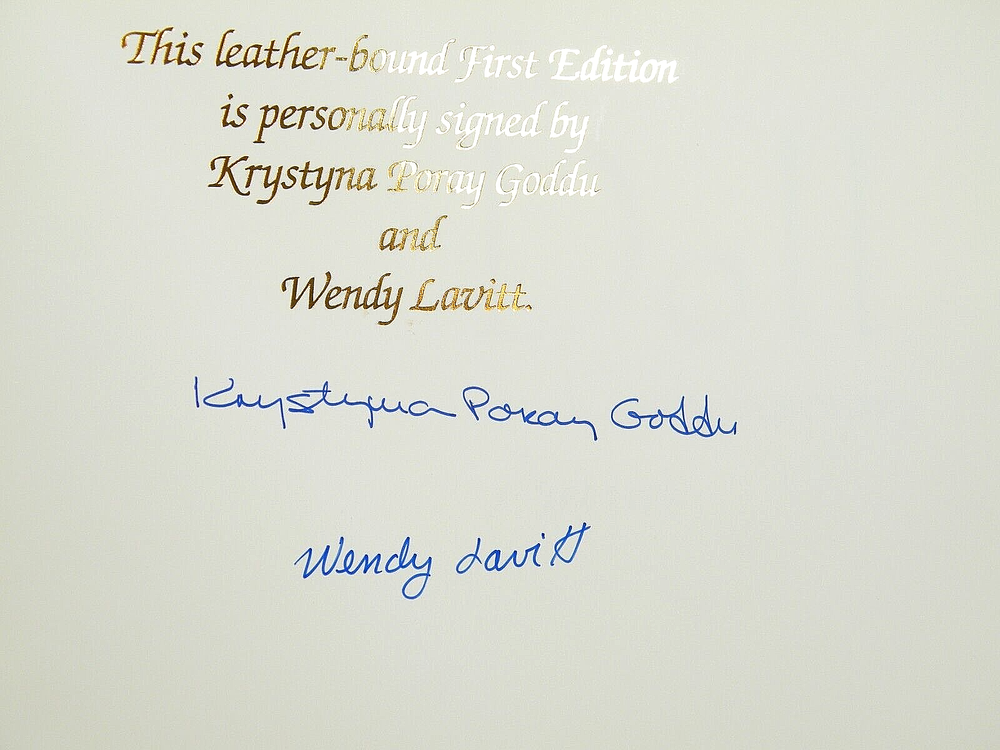 This leather-bound First Edition
is personally signed by
Krystyna Poray Goddu
and
Wendy Lavitt.
Krystyna Poray Goddu
Wendy Lavitt